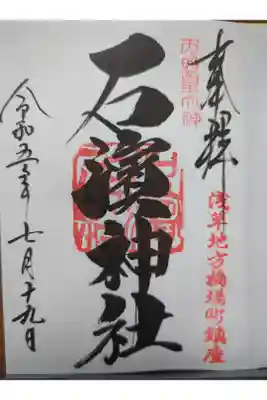 奉拝
浅草地方橋場町鎮座
石濱神社
令和五年七月十九日